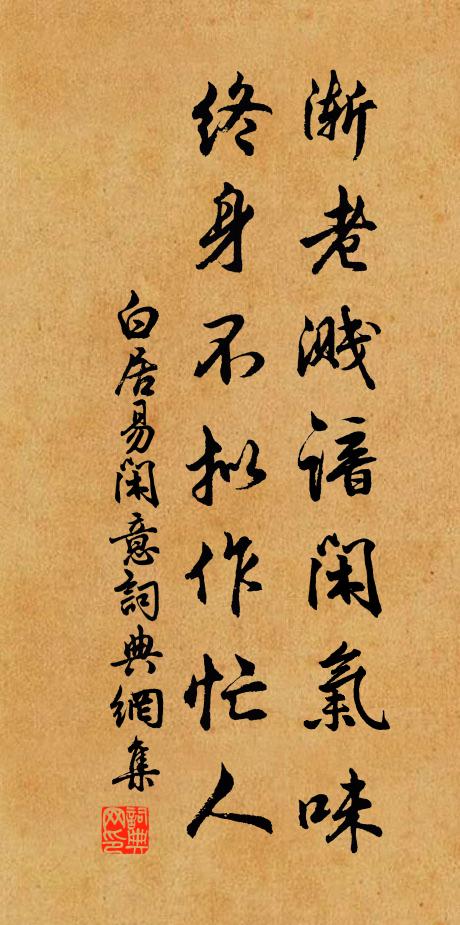 漸老濺諳閑氣味
終身不擬作忙人
白居易閑意詞典網集
詞典网印